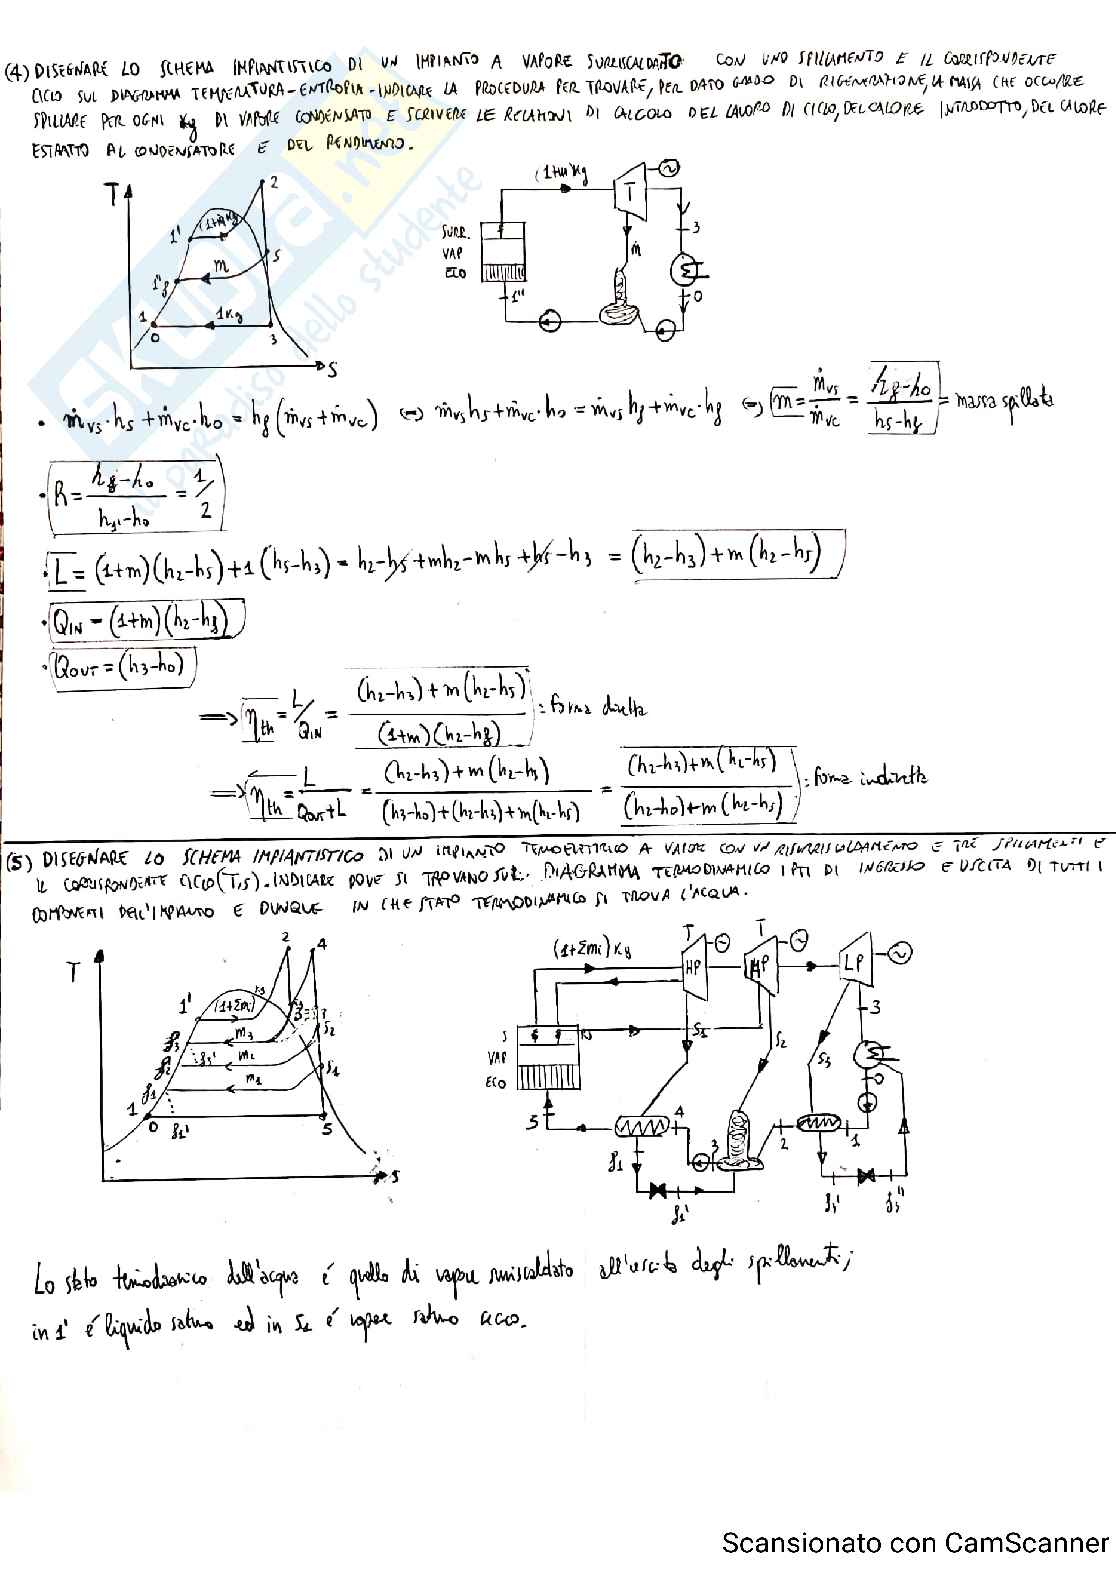 (4) DISEGNARE LO SCHEMA IMPIANTISTICO DI UN IMPIANTO A VAPORE SURRISCALDATO CON UNO SPILLAMENTO E IL CORRISPONDENTE
CICLO SUL DIAGRAMMA TEMPERATURA-ENTROPIA-INDICARE LA PROCEDURA PER TROVARE, PER DATO GRADO DI RIGENERAZIONE, LA MASSA CHE OCCORRE
SPILLARE PER OGNI Kg DI VAPORE CONDENSATO E SCRIVERE LE RELAZIONI DI CALCOLO DEL LAVORO DI CICLO, DEL CALORE INTRODOTTO, DEL CALORE
ESTRATTO AL CONDENSATORE E DEL RENDIMENTO.
T 2 1' (1+m)Kg 5 m 1"g 1 1Kg 0 3 S
(1+m)Kg T 3 SURR. VAP ECO ṁ 1" 0
• ṁvs·h5 + ṁvc·h0 = hg(ṁvs+ṁvc) ⇔ ṁvsh5+ṁvc·h0 = ṁvshg+ṁvc·hg ⇔ m = ṁvs/ṁvc = (hg-h0)/(h5-hg) = massa spillata
• R = (hg-h0)/(hg1-h0) = 1/2
• L = (1+m)(h2-h5)+1(h5-h3) = h2-h5+mh2-mh5+h5-h3 = (h2-h3)+m(h2-h5)
• QIN = (1+m)(h2-hg)
• QOUT = (h3-h0)
⇒ ηth = L/QIN = ((h2-h3)+m(h2-h5))/((1+m)(h2-hg)) : forma diretta
⇒ ηth = L/(QOUT+L) = ((h2-h3)+m(h2-h5))/((h3-h0)+(h2-h3)+m(h2-h5)) = ((h2-h3)+m(h2-h5))/((h2-h0)+m(h2-h5)) : forma indiretta
(5) DISEGNARE LO SCHEMA IMPIANTISTICO DI UN IMPIANTO TERMOELETTRICO A VAPORE CON UN RISURRISCALDAMENTO E TRE SPILLAMENTI E
IL CORRISPONDENTE CICLO (T,S). INDICARE DOVE SI TROVANO SUL DIAGRAMMA TERMODINAMICO I PTI DI INGRESSO E USCITA DI TUTTI I
COMPONENTI DELL'IMPIANTO E DUNQUE IN CHE STATO TERMODINAMICO SI TROVA L'ACQUA.
T 2 4 1' (1+Σmi) m3 m2 m1 g3 g2 g1 g3' g1' S2 S1 1 0 5 S
(1+Σmi)Kg T HP T MP LP 3 S RS VAP ECO S1 S2 S3 0 5 4 3 2 1 g1 g1' g3' g3"
Lo stato termodinamico dell'acqua é quello di vapore surriscaldato all'uscita degli spillamenti;
in 1' é liquido saturo ed in S2 é vapore saturo secco.
Scansionato con CamScanner